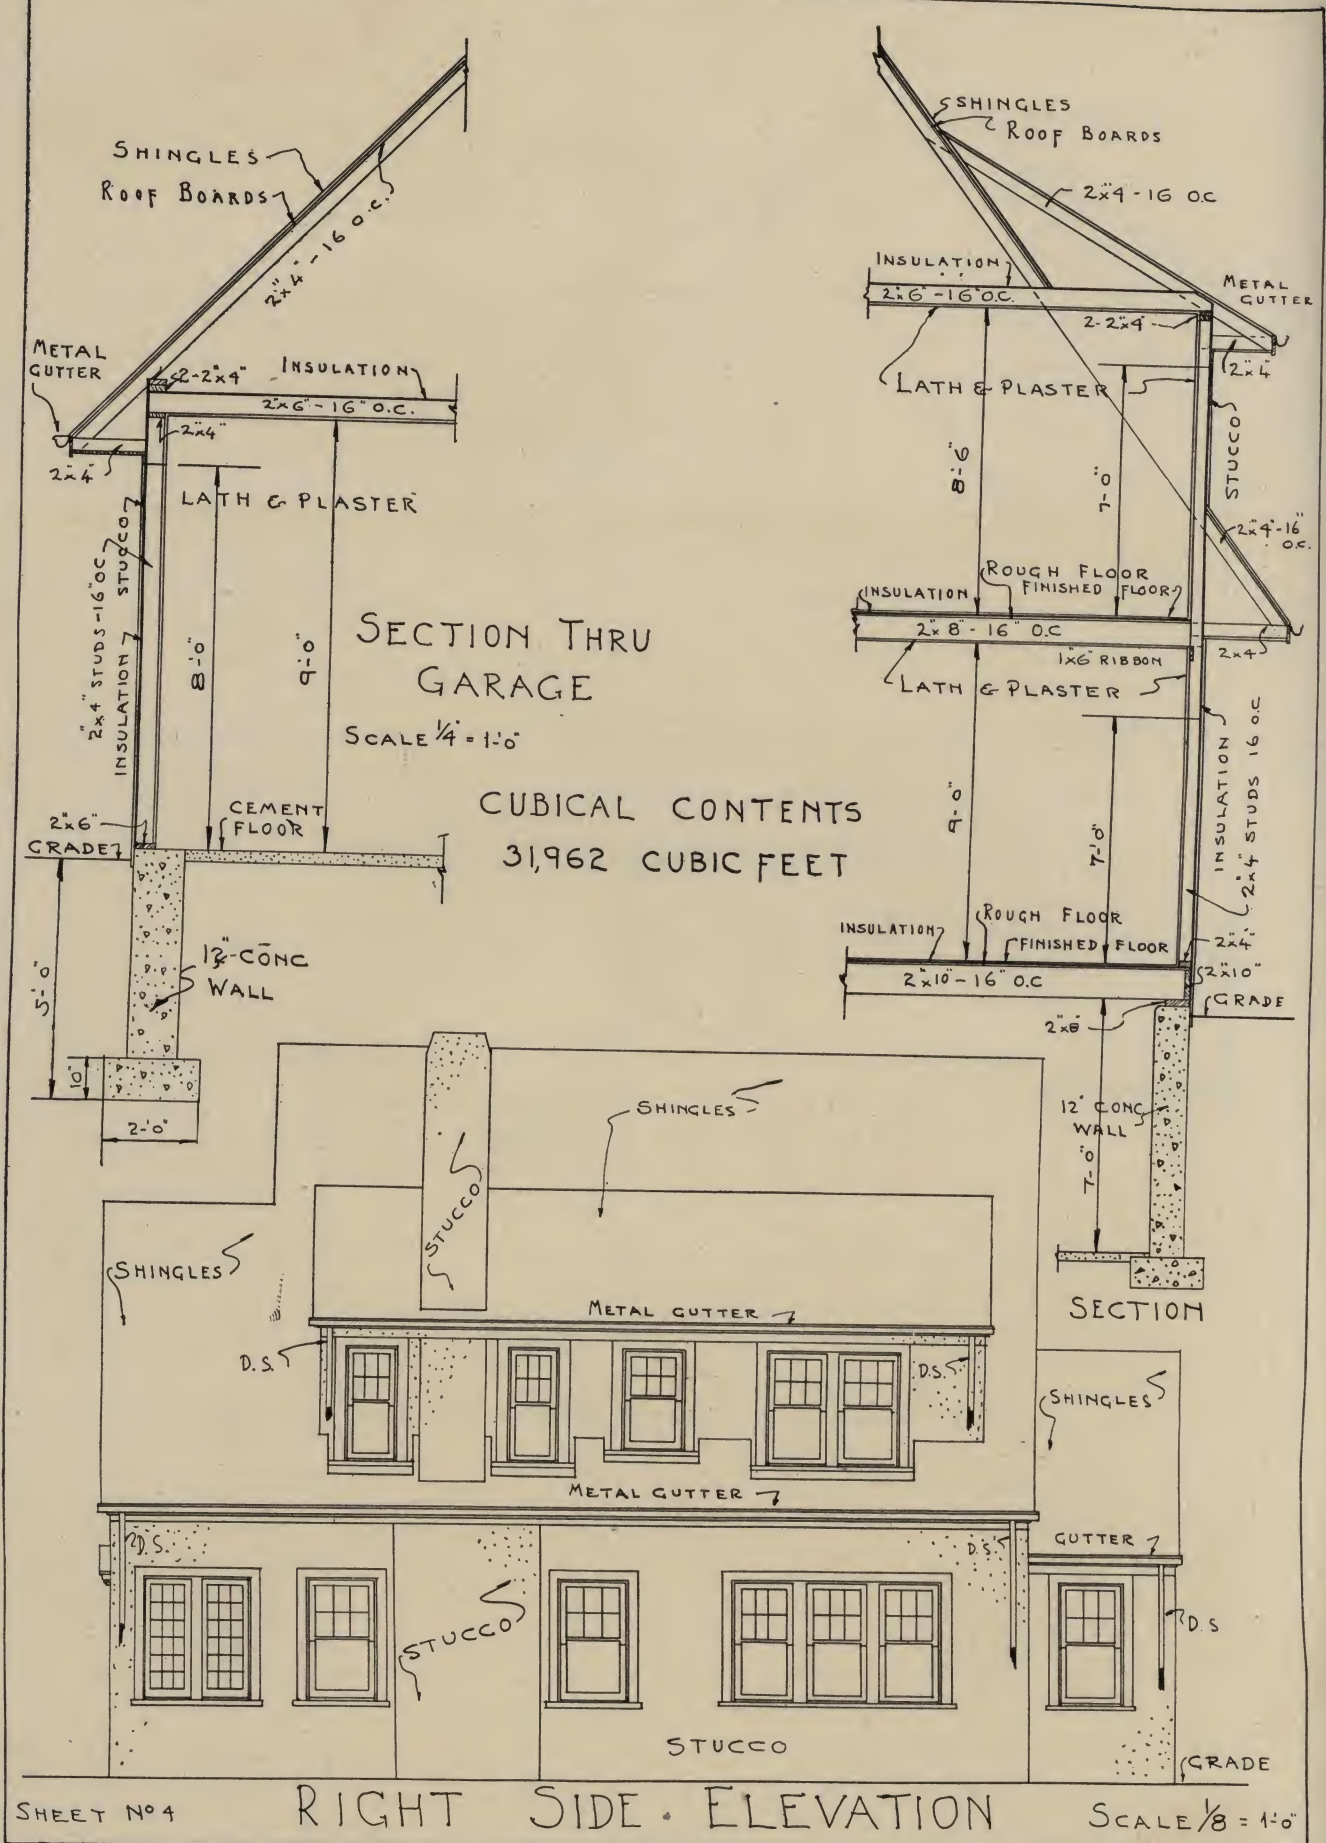 SHINGLES
ROOF BOARDS
2"x4" - 16 O.C.
METAL
GUTTER
2-2"x4"
INSULATION
2"x6" - 16" O.C.
2"x4"
2"x4"
LATH & PLASTER
STUCCO
2"x4" STUDS - 16" OC
INSULATION
8'-0"
9'-0"
SECTION THRU
GARAGE
SCALE 1/4" = 1'-0"
CEMENT
FLOOR
2"x6"
GRADE
5'-0"
CONC
WALL
10"
2'-0"
CUBICAL CONTENTS
31,962 CUBIC FEET
SHINGLES
ROOF BOARDS
2"x4 - 16 O.C
INSULATION
2"x6" - 16" O.C.
METAL
GUTTER
2-2"x4"
2"x4"
LATH & PLASTER
STUCCO
8'-6"
7'-0"
2"x4"-16"
O.C.
INSULATION
ROUGH FLOOR
FINISHED FLOOR
2"x 8" - 16" O.C
2"x4"
1"x6" RIBBON
LATH & PLASTER
INSULATION
2"x4" STUDS 16 O.C
9'-0"
7'-0"
INSULATION
ROUGH FLOOR
FINISHED FLOOR
2"x4"
2"x10" - 16" O.C
2"x10"
GRADE
12" CONC
WALL
7'-0"
SECTION
SHINGLES
STUCCO
SHINGLES
METAL GUTTER
D.S.
D.S.
SHINGLES
METAL GUTTER
D.S.
D.S.
GUTTER
D.S
STUCCO
STUCCO
GRADE
SHEET No 4
RIGHT SIDE. ELEVATION
SCALE 1/8 = 1'-0"